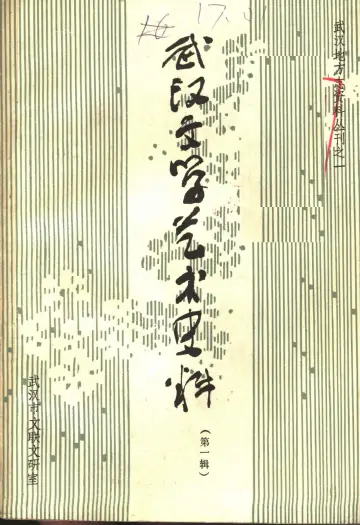 17.01
武汉地方志资料丛刊之一
武汉文学艺术史料
(第一辑)
武汉市文联文研室